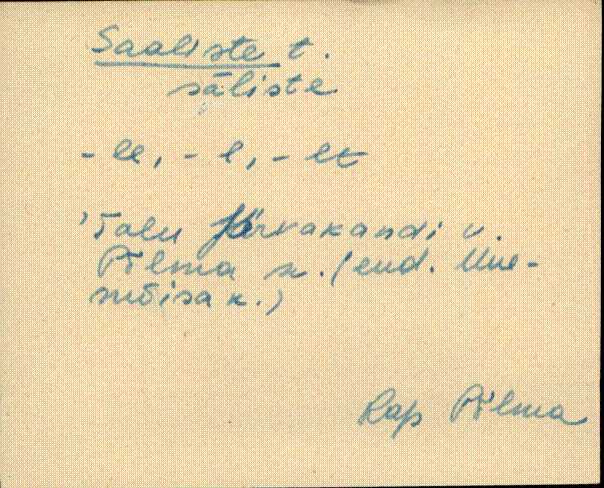 Saaliste t.
sāliste
- le, - l, - et
'Talu Järvakandi v.
Pīlma k. (end. Uue-
mõisa k.)
Rap Pīlma